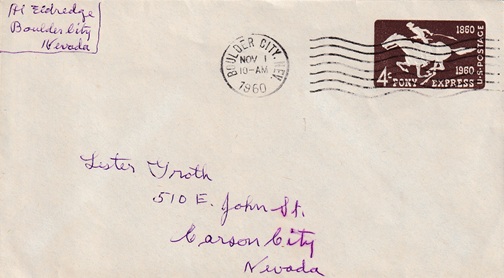 Eldredge
Boulder City
Nevada
BOULDER CITY, NEV.
NOV 1
10-AM
1960
1860
1960
U.S. POSTAGE
4¢ PONY EXPRESS
Lester Groth
510 E. John St.
Carson City
Nevada